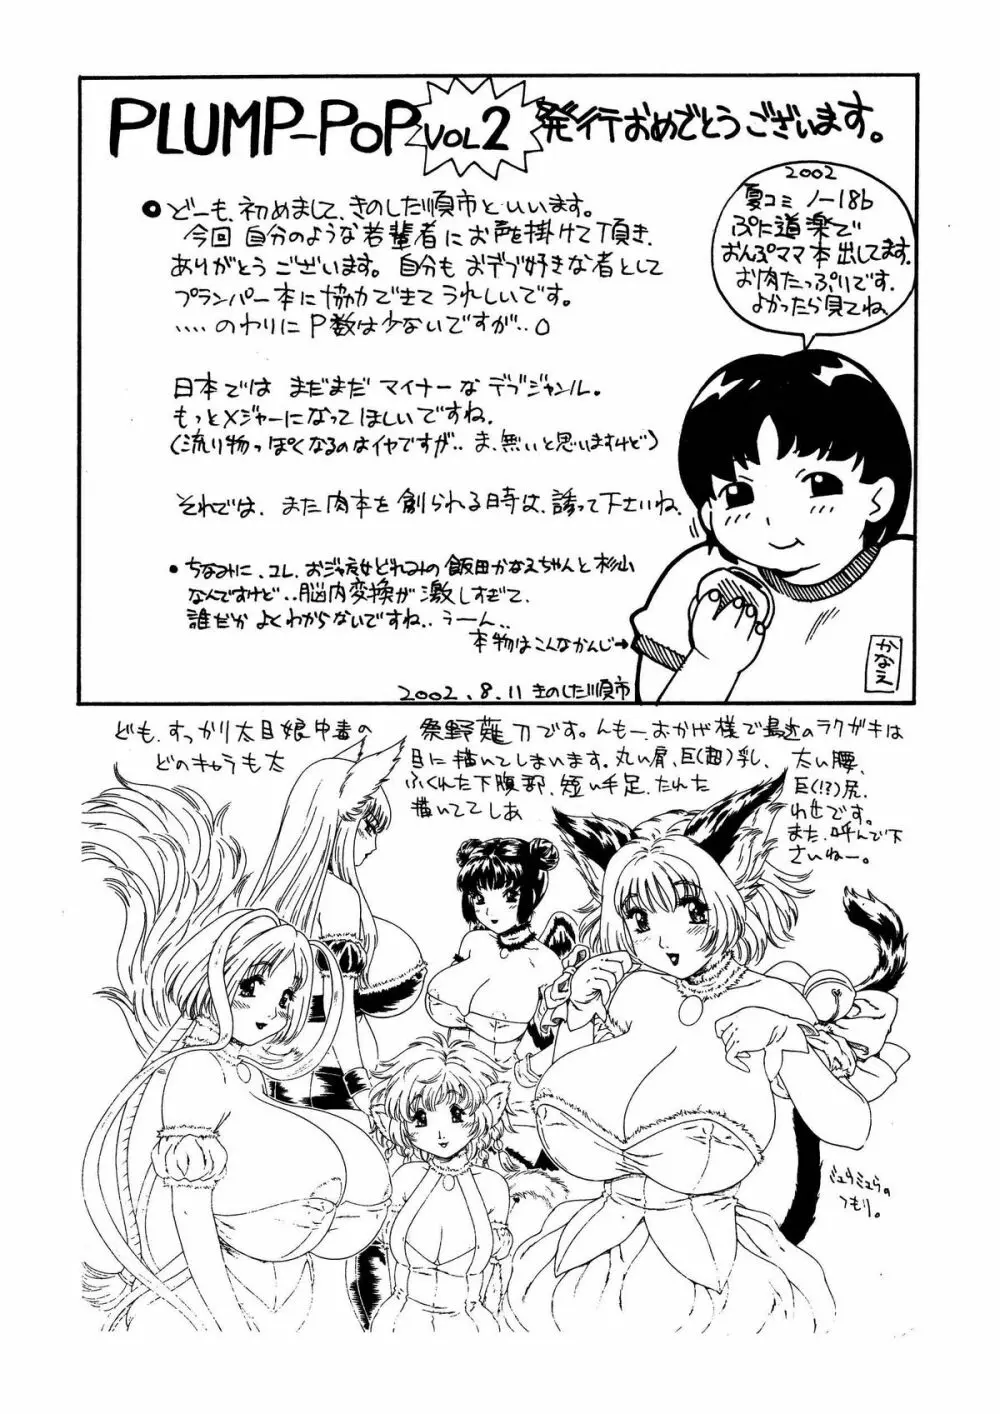 PLUMP-POP VOL2 発行おめでとうございます。
どーも、初めまして、きのした順市といいます。
今回 自分のような若輩者にお声を掛けて頂き、
ありがとうございます。自分もおデブ好きな者として
プランパー本に協力できてうれしいです。
....のわりにP数は少ないですが..。
日本では まだまだ マイナーな デブジャンル。
もっとメジャーになって ほしいですね。
(流り物っぽくなるのはイヤですが.. ま、無いと思いますけど)
それでは、また肉本を創られる時は、誘って下さいね。
ちなみに、コレ、おジャ魔女どれみの飯田かなえちゃんと杉山
なんですけど..脳内変換が激しすぎて、
誰だか よくわからないですね.. うーん..
本物はこんなかんじ→
2002.8.11 きのした順市
2002
夏コミ ノー18b
ぷに道楽で
おんぷママ本出してます。
お肉たっぷりです。
よかったら見てね。
かなえ
ども、すっかり太目娘中毒の
どのキャラも太
祭野薙刀です。んもー、おかげ様で最近のラクガキは
目に描いてしまいます。丸い肩、巨(超)乳、
ふくれた下腹部、短い手足、たれた
描いててしあ
太い腰、
巨(!?)尻、
わせです。
また、呼んで下
さいねー。
ミュウミュウの
つもり。